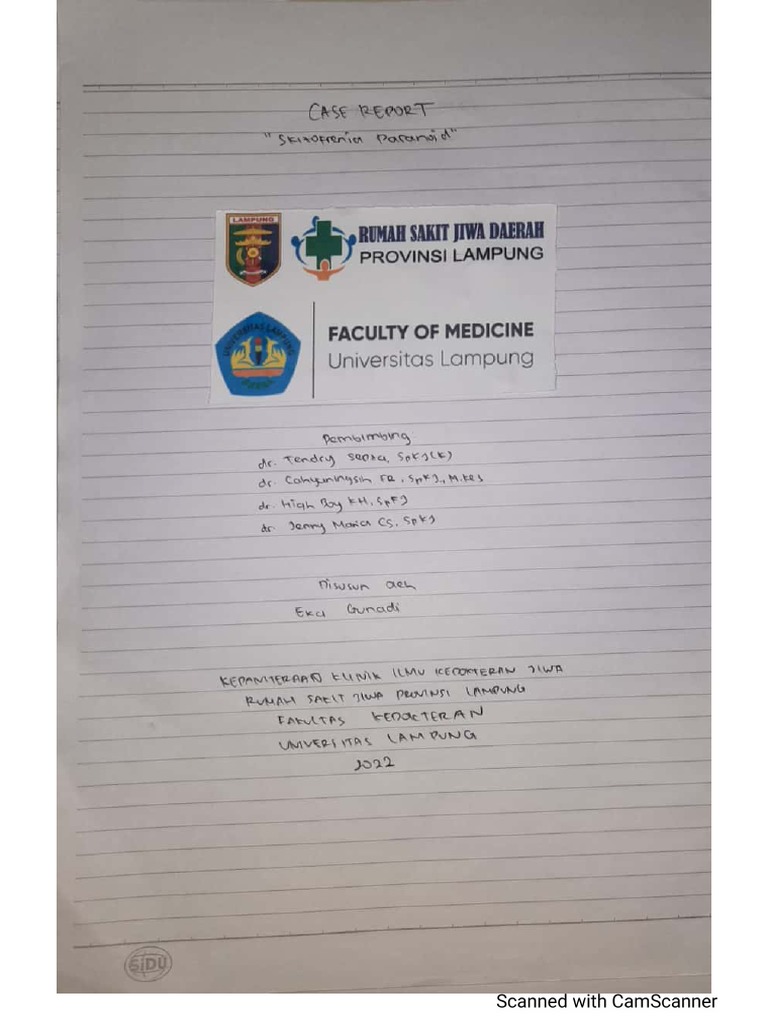 CASE REPORT
"Skizofrenia Paranoid"
LAMPUNG
RUMAH SAKIT JIWA DAERAH
PROVINSI LAMPUNG
UNIVERSITAS LAMPUNG
FACULTY OF MEDICINE
Universitas Lampung
Pembimbing
dr. Tendry Septa, SpKJ(K)
dr. Cahyaningsih FR, SpKJ., M.Kes
dr. High Boy KH, SpKJ
dr. Jenny Maria CS, SpKJ
Disusun oleh
Eka Gunadi
KEPANITERAAN KLINIK ILMU KEDOKTERAN JIWA
RUMAH SAKIT JIWA PROVINSI LAMPUNG
FAKULTAS KEDOKTERAN
UNIVERSITAS LAMPUNG
2022
SIDU
Scanned with CamScanner